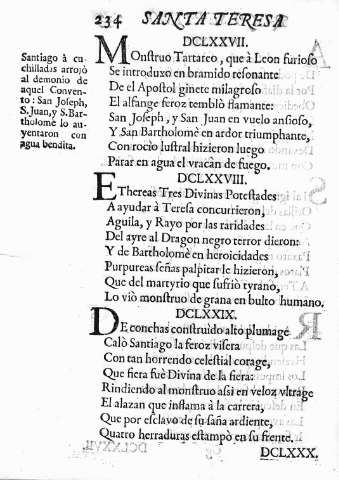 234 SANTA TERESA
DCLXXVII.
Santiago à cu-
chilladas arrojò
al demonio de
aquel Conven-
to: San Joseph,
S. Juan, y S. Bar-
tholomè lo au-
yentaron con
agua bendita.
Monstruo Tartareo, que à Leon furioso
Se introduxo en bramido resonante
De el Apostol ginete milagroso
El alfange feroz temblò flamante:
San Joseph, y San Juan en vuelo ansioso,
Y San Bartholomè en ardor triumphante,
Con rocìo lustral hizieron luego
Parar en agua el vracàn de fuego.
DCLXXVIII.
Ethereas Tres Divinas Potestades
A ayudar à Teresa concurrieron,
Aguila, y Rayo por las raridades
Del ayre al Dragon negro terror dieron:
Y de Bartholomè en heroicidades
Purpureas señas palpitar le hizieron,
Que del martyrio que sufriò tyrano,
Lo viò monstruo de grana en bulto humano.
DCLXXIX.
De conchas construìdo alto plumage
Calò Santiago la feroz visera
Con tan horrendo celestial corage,
Que fiera fuè Divina de la fiera:
Rindiendo al monstruo assi en veloz vltrage
El alazan que inflama à la carrera,
Que por esclavo de su saña ardiente,
Quatro herraduras estampò en su frente.
DCLXXX.